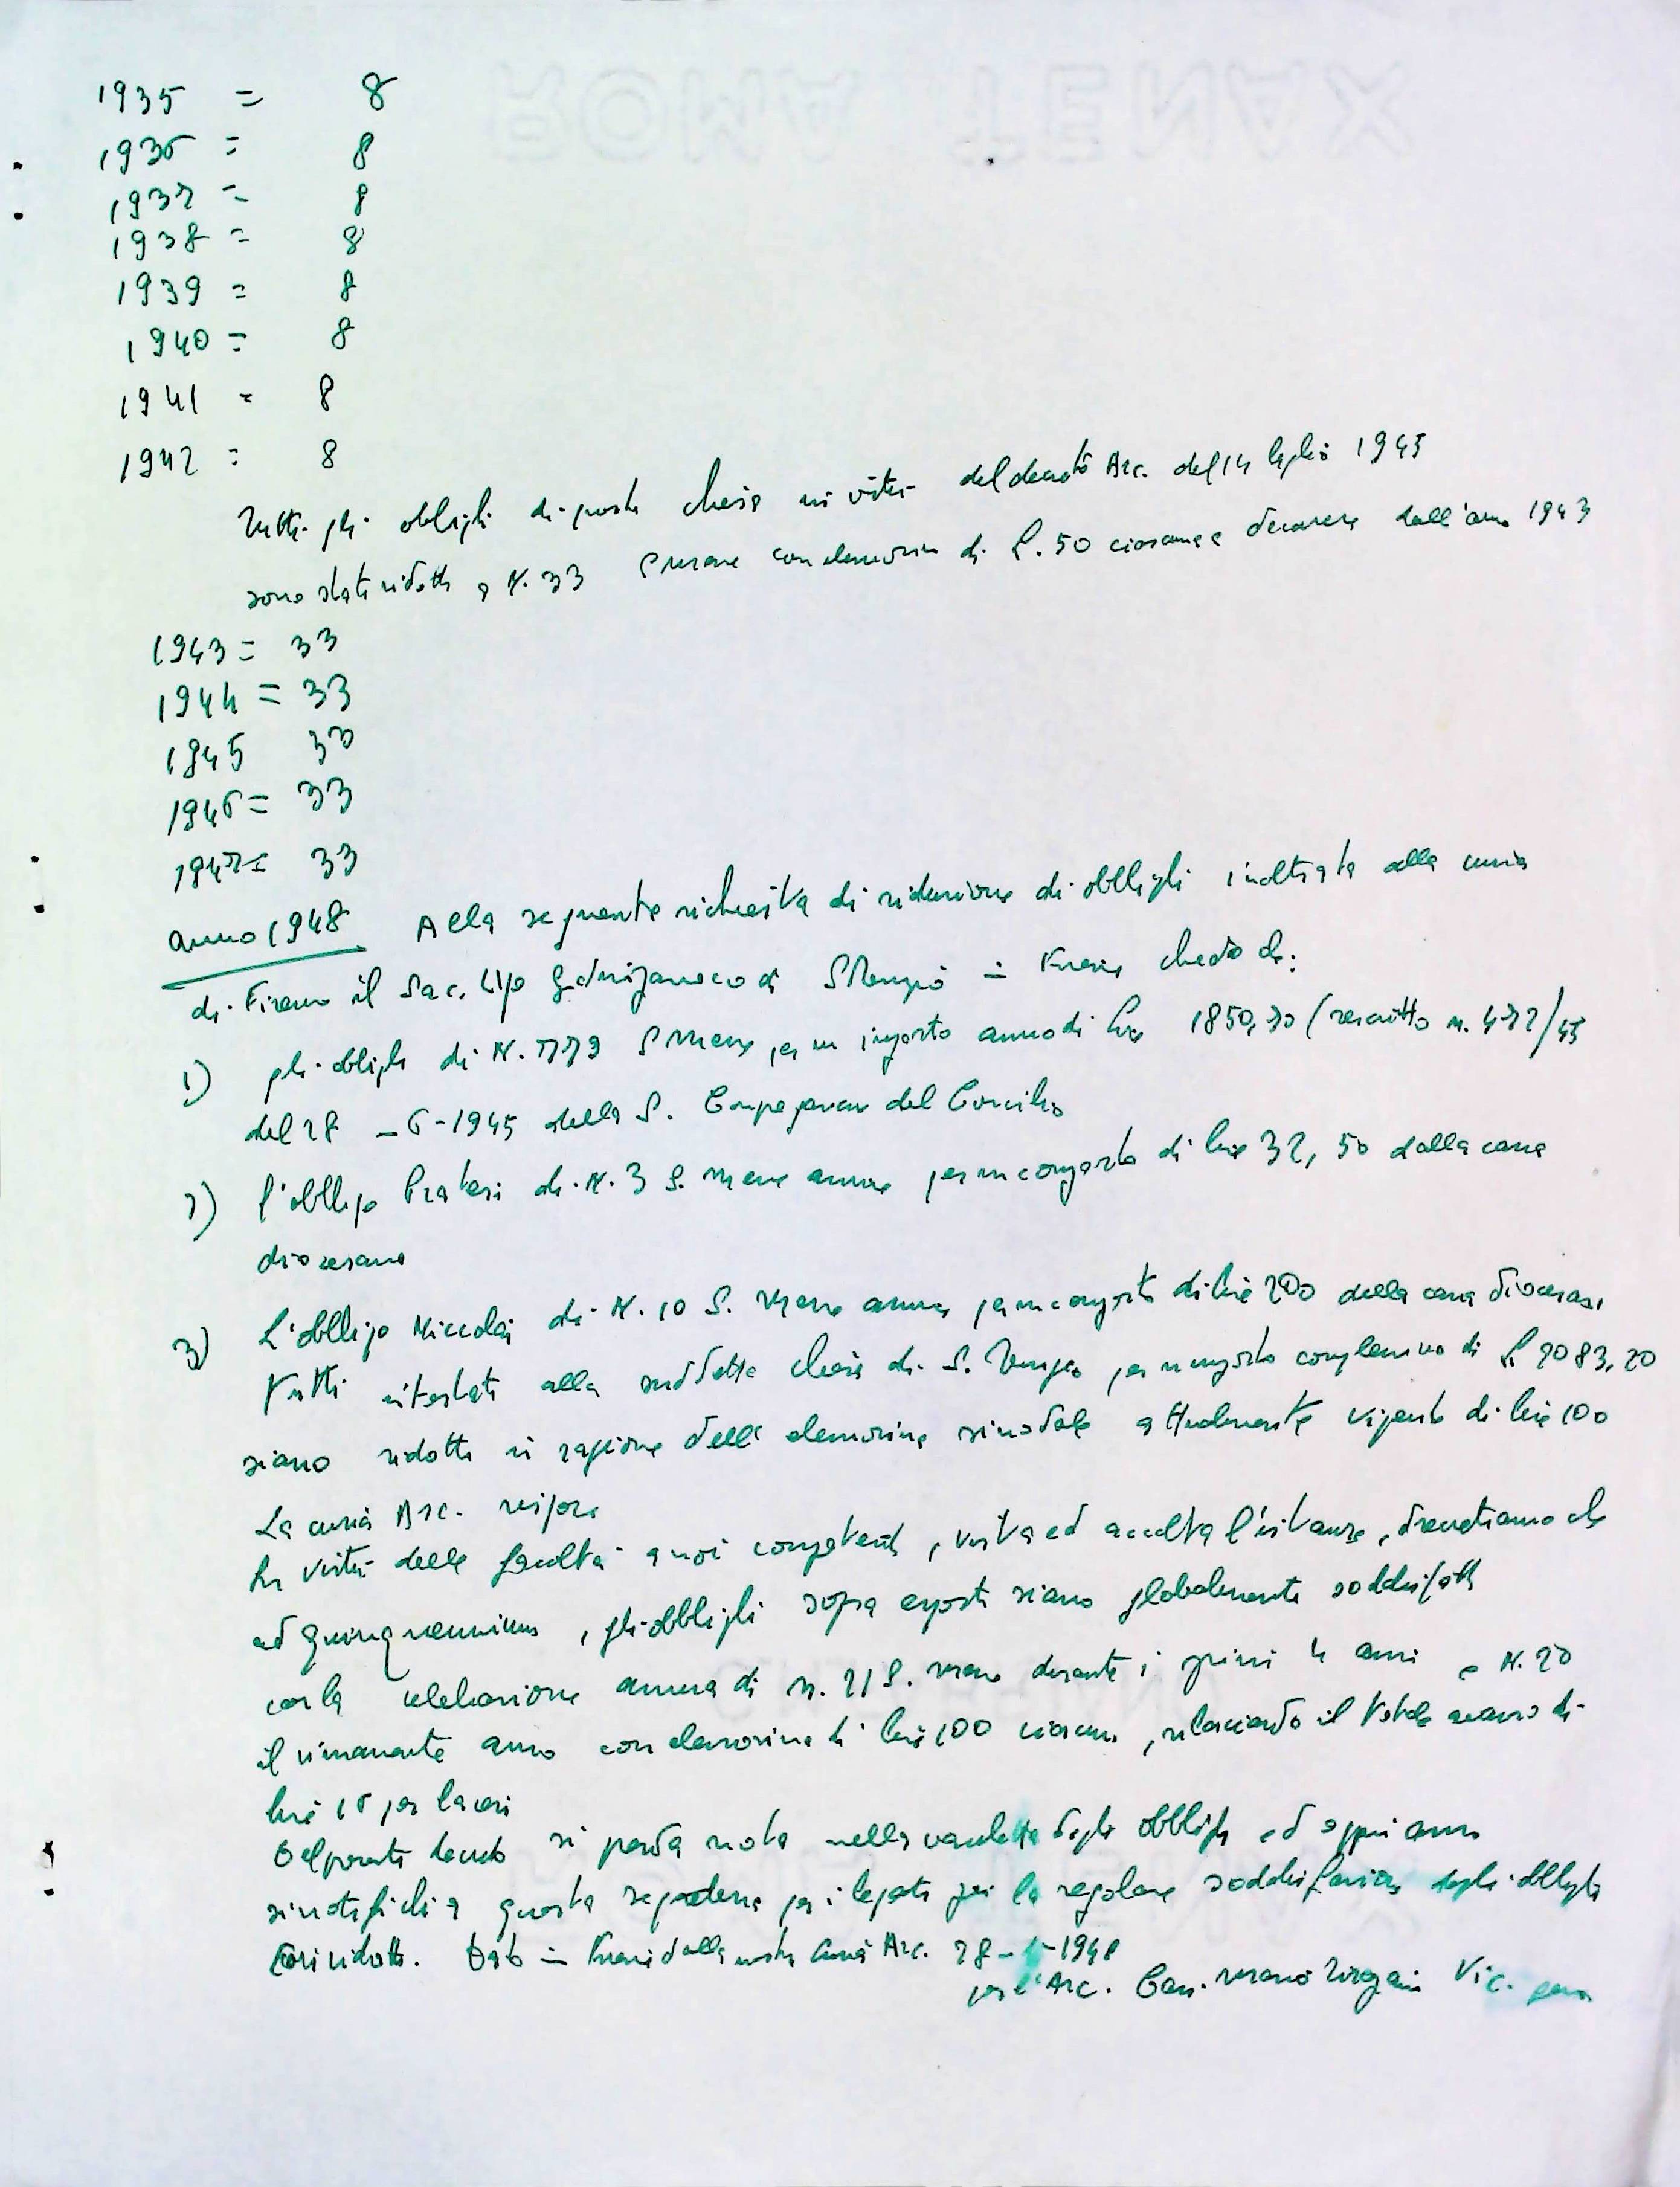 ROMA TENAX
1935 = 8
1936 = 8
1937 = 8
1938 = 8
1939 = 8
1940 = 8
1941 = 8
1942 = 8
Tutti gli obblighi di questa chiesa in virtù del decreto Arc. del 14 luglio 1943
sono stati ridotti a N. 33 S messe con elemosina di L. 50 ciascuna a decorrere dall'anno 1943
1943 = 33
1944 = 33
1945 33
1946 = 33
1947 = 33
anno 1948 Alla seguente richiesta di riduzione di obblighi inoltrata alla curia
di Firenze il Sac. parroco di S. = Firenze chiede che:
1) gli obblighi di N. 779 S Messe per un importo annuo di lire 1850,70 (rescritto n. 472/45
del 28 - 6 - 1945 della S. Congregazione del Concilio
2) l'obbligo Prateri di N. 3 S. Messe annue per un importo di lire 32,50 dalla cassa
diocesana
3) L'obbligo Niccolai di N. 10 S. Messe annue per un importo di lire 200 della cassa diocesana
Tutti intestati alla suddetta chiesa di S. per un importo complessivo di L 2083,20
siano ridotti in ragione dell' elemosina sinodale attualmente vigente di lire 100
La curia Arc. rispose
In virtù delle facoltà a noi competenti, vista ed accolta l'istanza, decretiamo che
ad quinquennium, gli obblighi sopra esposti siano globalmente soddisfatti
con la celebrazione annua di n. 21 S. messe durante i primi 4 anni e N. 20
il rimanente anno con elemosina di lire 100 ciascuna, rilasciando il totale avanzo di
lire 16 per la
Del presente decreto si prenda nota nella vacchetta degli obblighi ed ogni anno
si notifichi a questa segreteria per i legati pii la regolare soddisfazione degli obblighi
così ridotti. Dato in Firenze dalla nostra Curia Arc. 28 - - 1948
per l'Arc. Can. Vic. gen